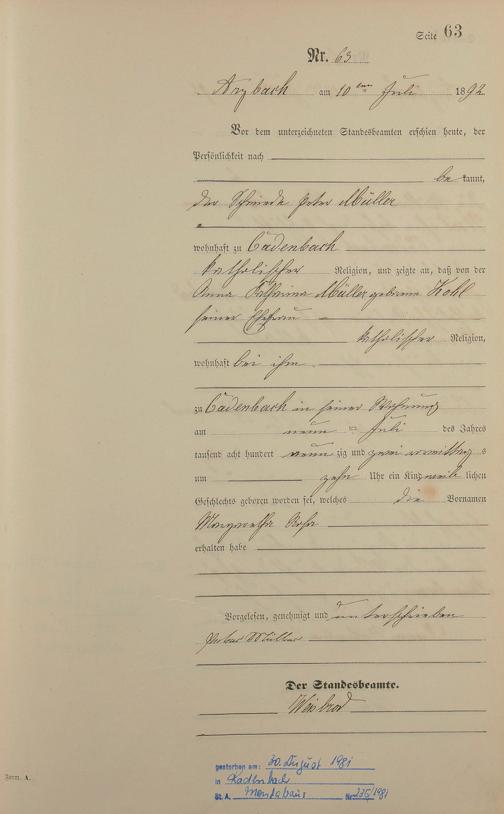 Seite 63
Nr. 63
Arzbach am 10ten Juli 1892
Vor dem unterzeichneten Standesbeamten erschien heute, der
Persönlichkeit nach
be kannt,
der Schmied Peter Müller
wohnhaft zu Cadenbach
katholischer Religion, und zeigte an, daß von der
Anna Müller geborene Kohl
seiner Ehefrau
katholischer Religion,
wohnhaft bei ihm
zu Cadenbach in seiner Wohnung
am neun ten Juli des Jahres
tausend acht hundert neun zig und zwei vormittags
um zehn Uhr ein Kind weib lichen
Geschlechts geboren worden sei, welches die Vornamen
Margaretha
erhalten habe
Vorgelesen, genehmigt und unterschrieben
Peter Müller
Der Standesbeamte.
Weisbrod
gestorben am: 30. August 1981
in Kadenbach
St. A. Montabaur Nr. 235/1981
Form. A.